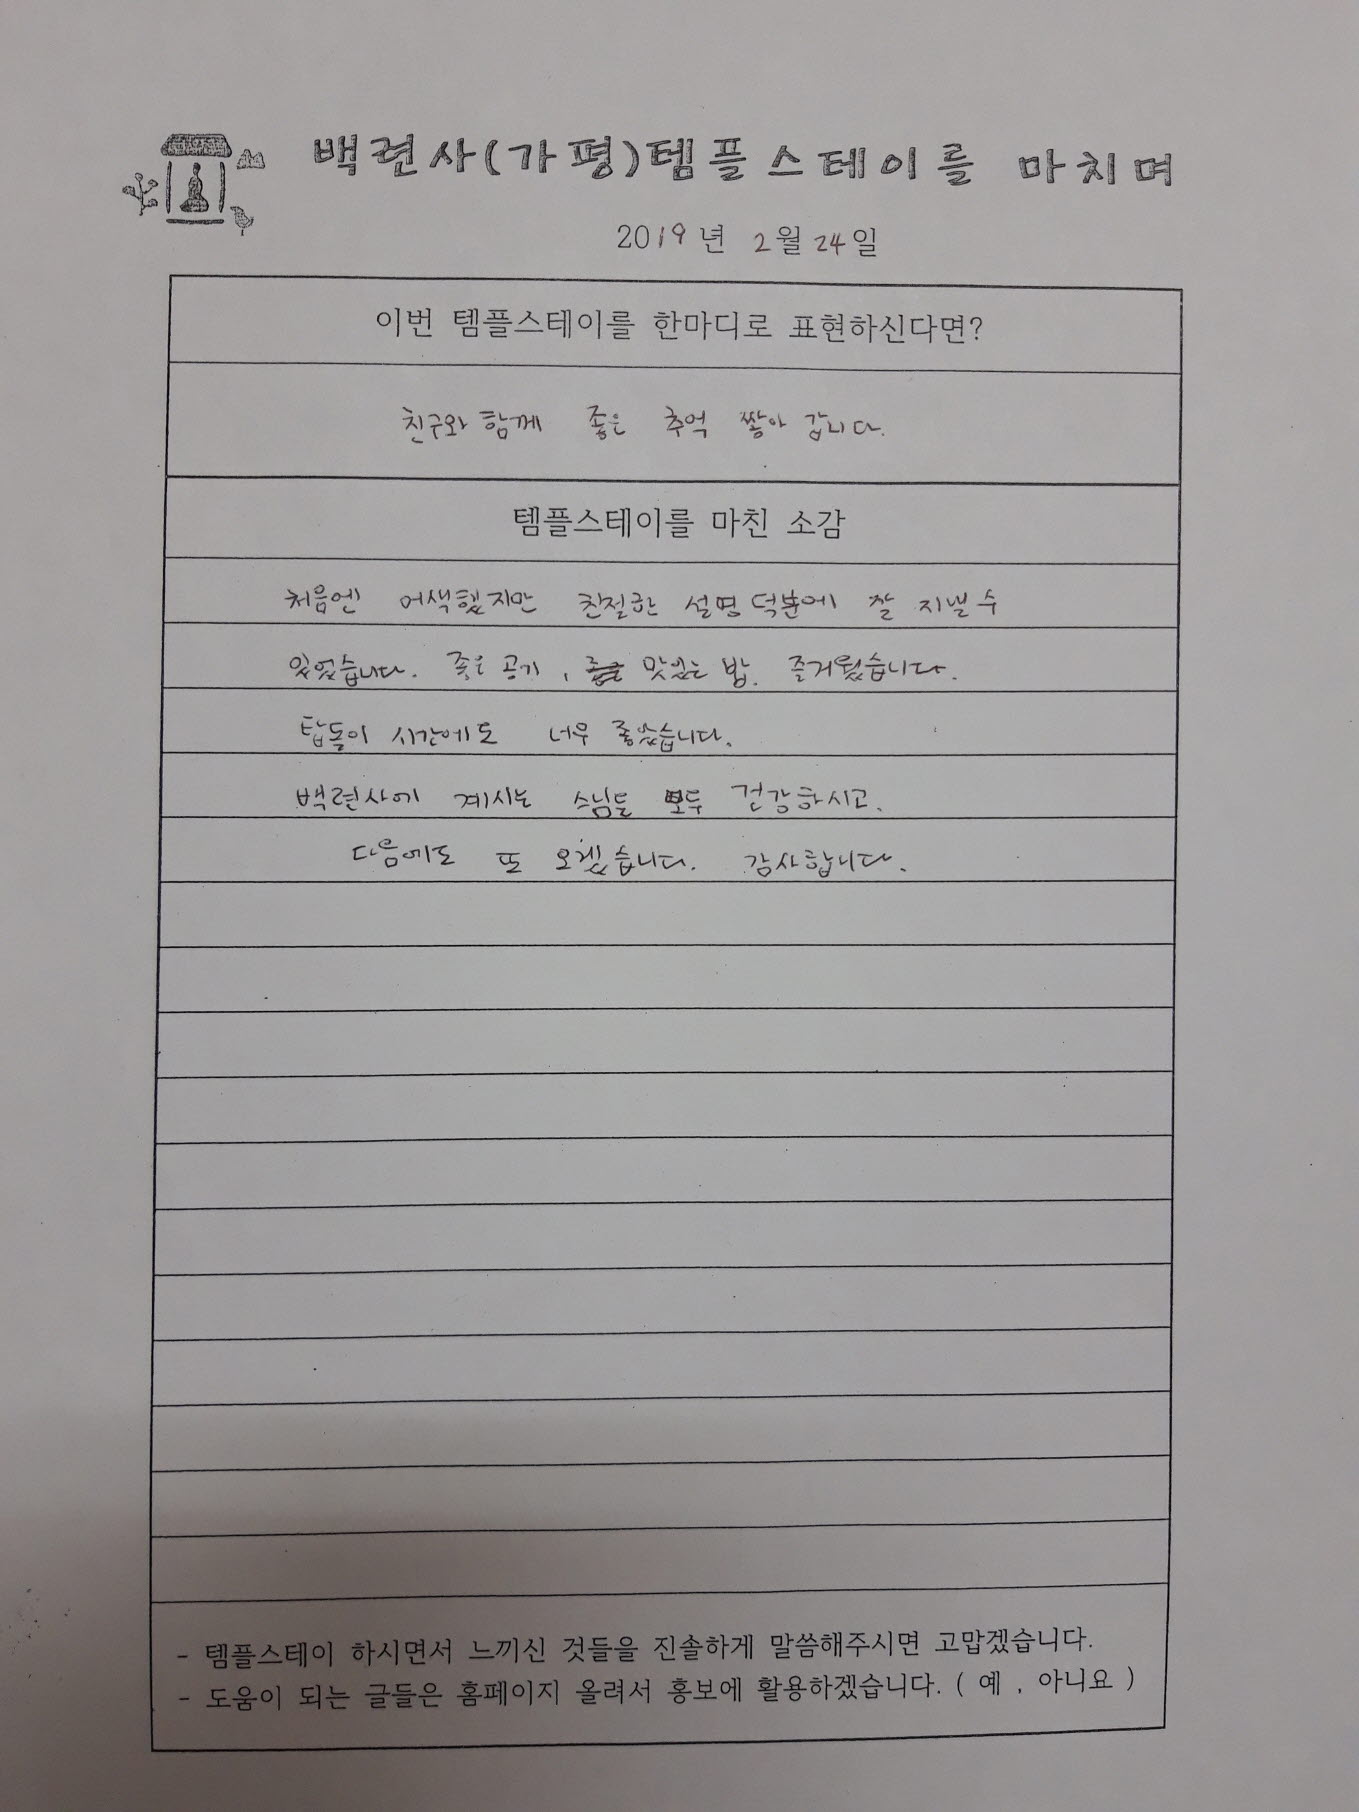 백련사(가평)템플스테이를 마치며
2019년 2월 24일
이번 템플스테이를 한마디로 표현하신다면?
친구와 함께 좋은 추억 쌓아 갑니다.
템플스테이를 마친 소감
처음엔 어색했지만 친절한 설명 덕분에 잘 지낼 수
있었습니다. 좋은 공기, 맛있는 밥. 즐거웠습니다.
탑돌이 시간에도 너무 좋았습니다.
백련사에 계시는 스님들 모두 건강하시고.
다음에도 또 오겠습니다. 감사합니다.
- 템플스테이 하시면서 느끼신 것들을 진솔하게 말씀해주시면 고맙겠습니다.
- 도움이 되는 글들은 홈페이지 올려서 홍보에 활용하겠습니다. ( 예 , 아니요 )